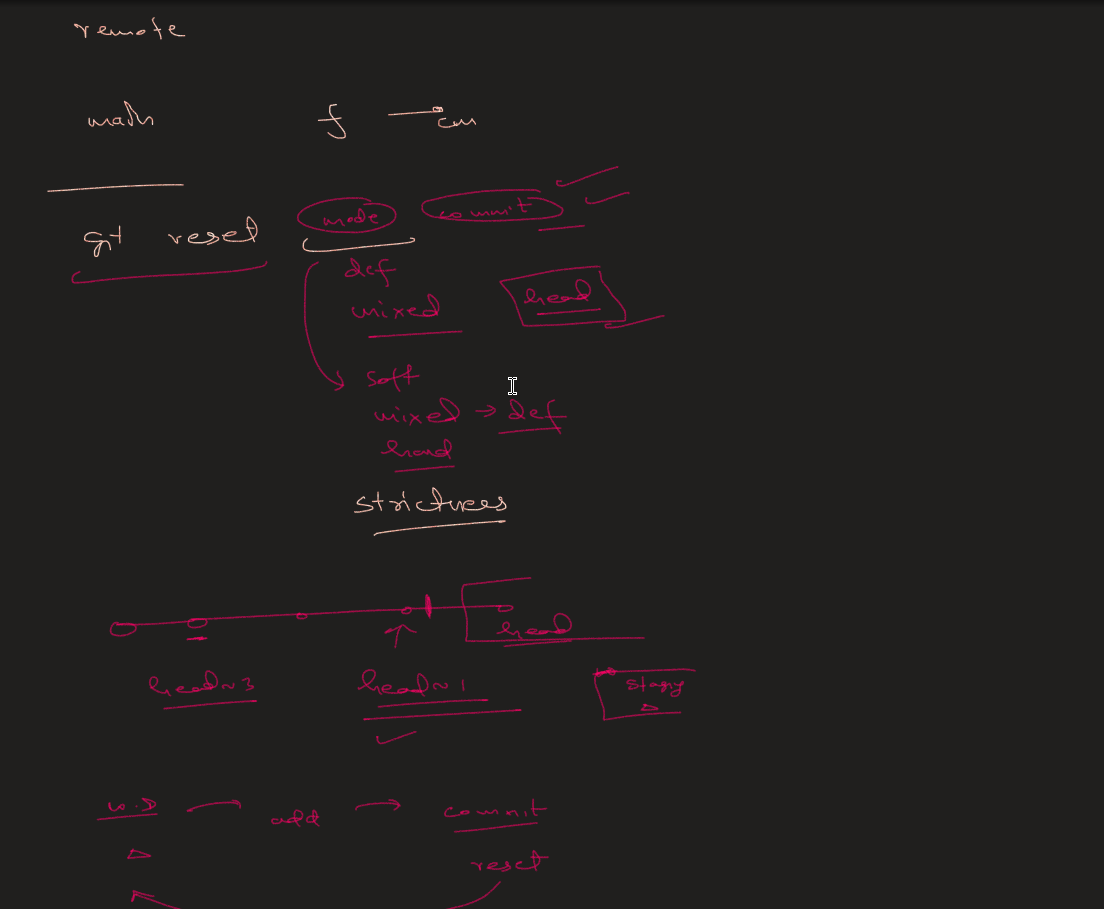 remote
main f → cm
git reset mode commit
def
mixed head
soft
mixed → def
hard
strictures
head
head~3 head~1 stagy
w.D → add → commit
reset